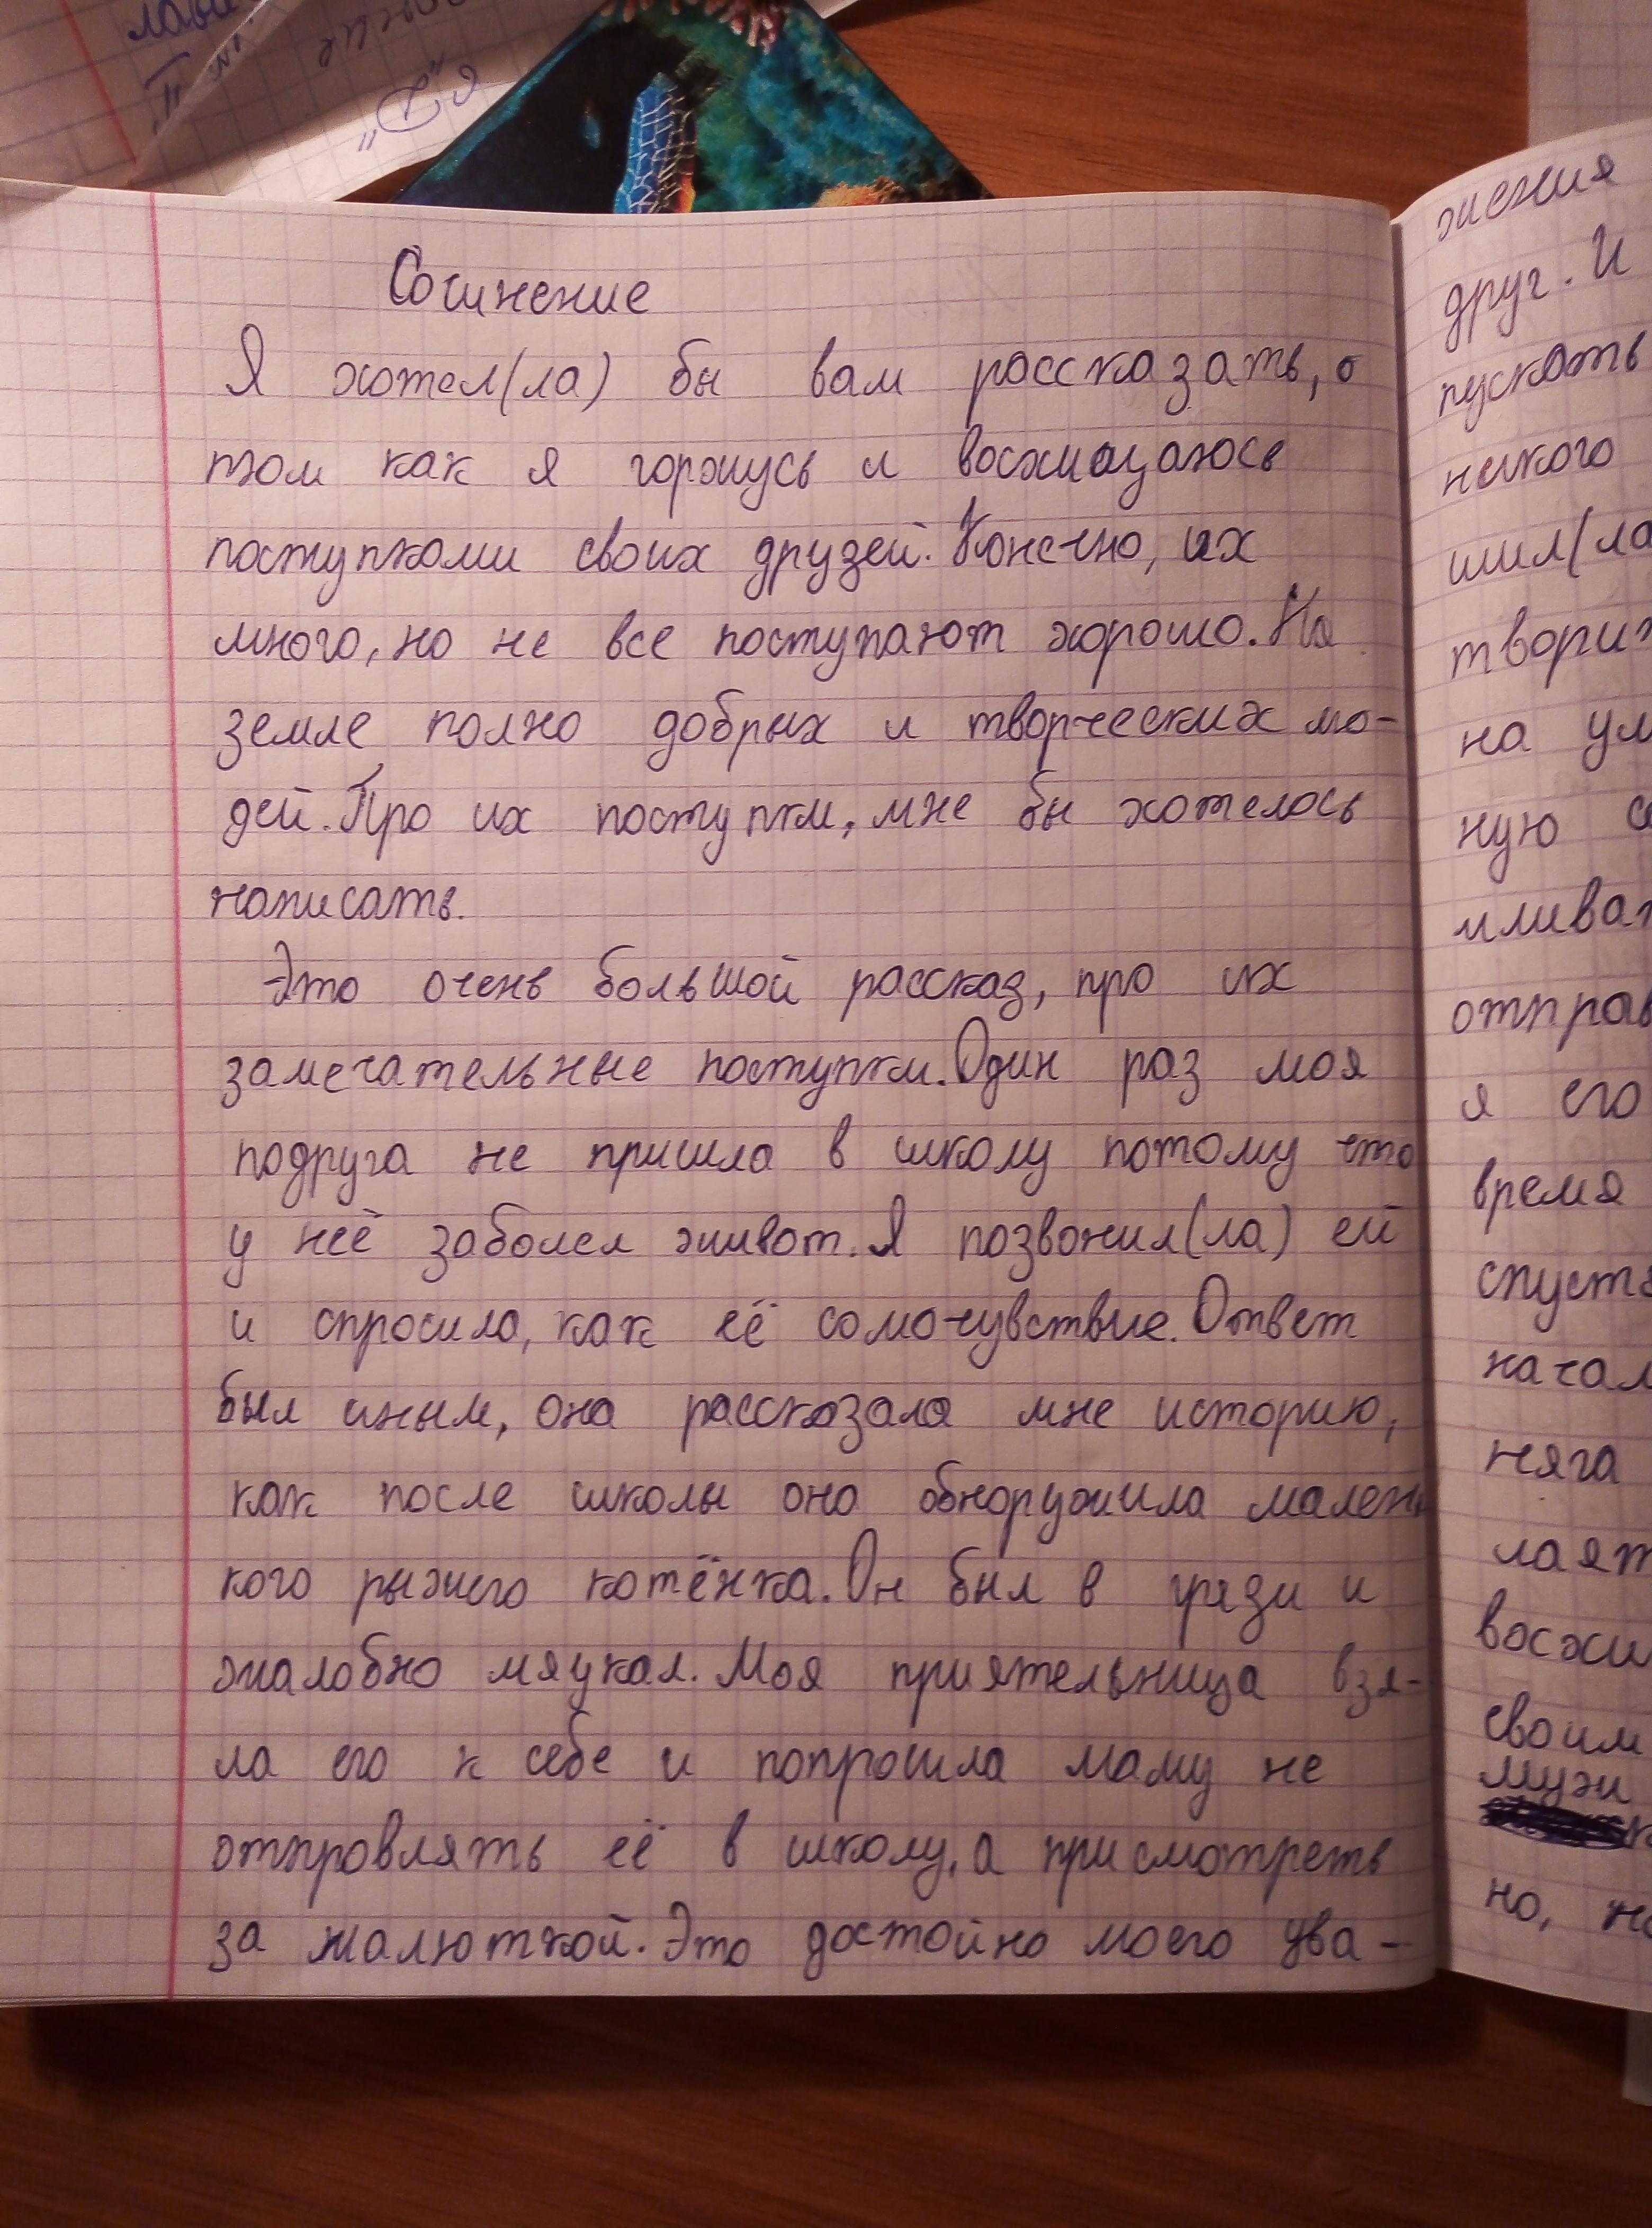 Сочинение
Я хотел(ла) бы вам рассказать, о
том как я горжусь и восхищаюсь
поступками своих друзей. Конечно, их
много, но не все поступают хорошо. На
земле полно добрых и творческих лю-
дей. Про их поступки, мне бы хотелось
написать.
Это очень большой рассказ, про их
замечательные поступки. Один раз моя
подруга не пришла в школу потому что
у неё заболел живот. Я позвонил(ла) ей
и спросила, как её самочувствие. Ответ
был иным, она рассказала мне историю,
как после школы она обноружила малень
кого рыжего котёнка. Он был в грязи и
жалобно мяукал. Моя приятельница взя-
ла его к себе и попросила маму не
отправлять её в школу, а присмотреть
за малюткой. Это достойно моего ува-
жения
друг. И
пускать
некого
шил(ла
твори
на ум
ную
отправ
я его
время
спустя
начал
няга
лаят
восхи
своим
мужи
но, не